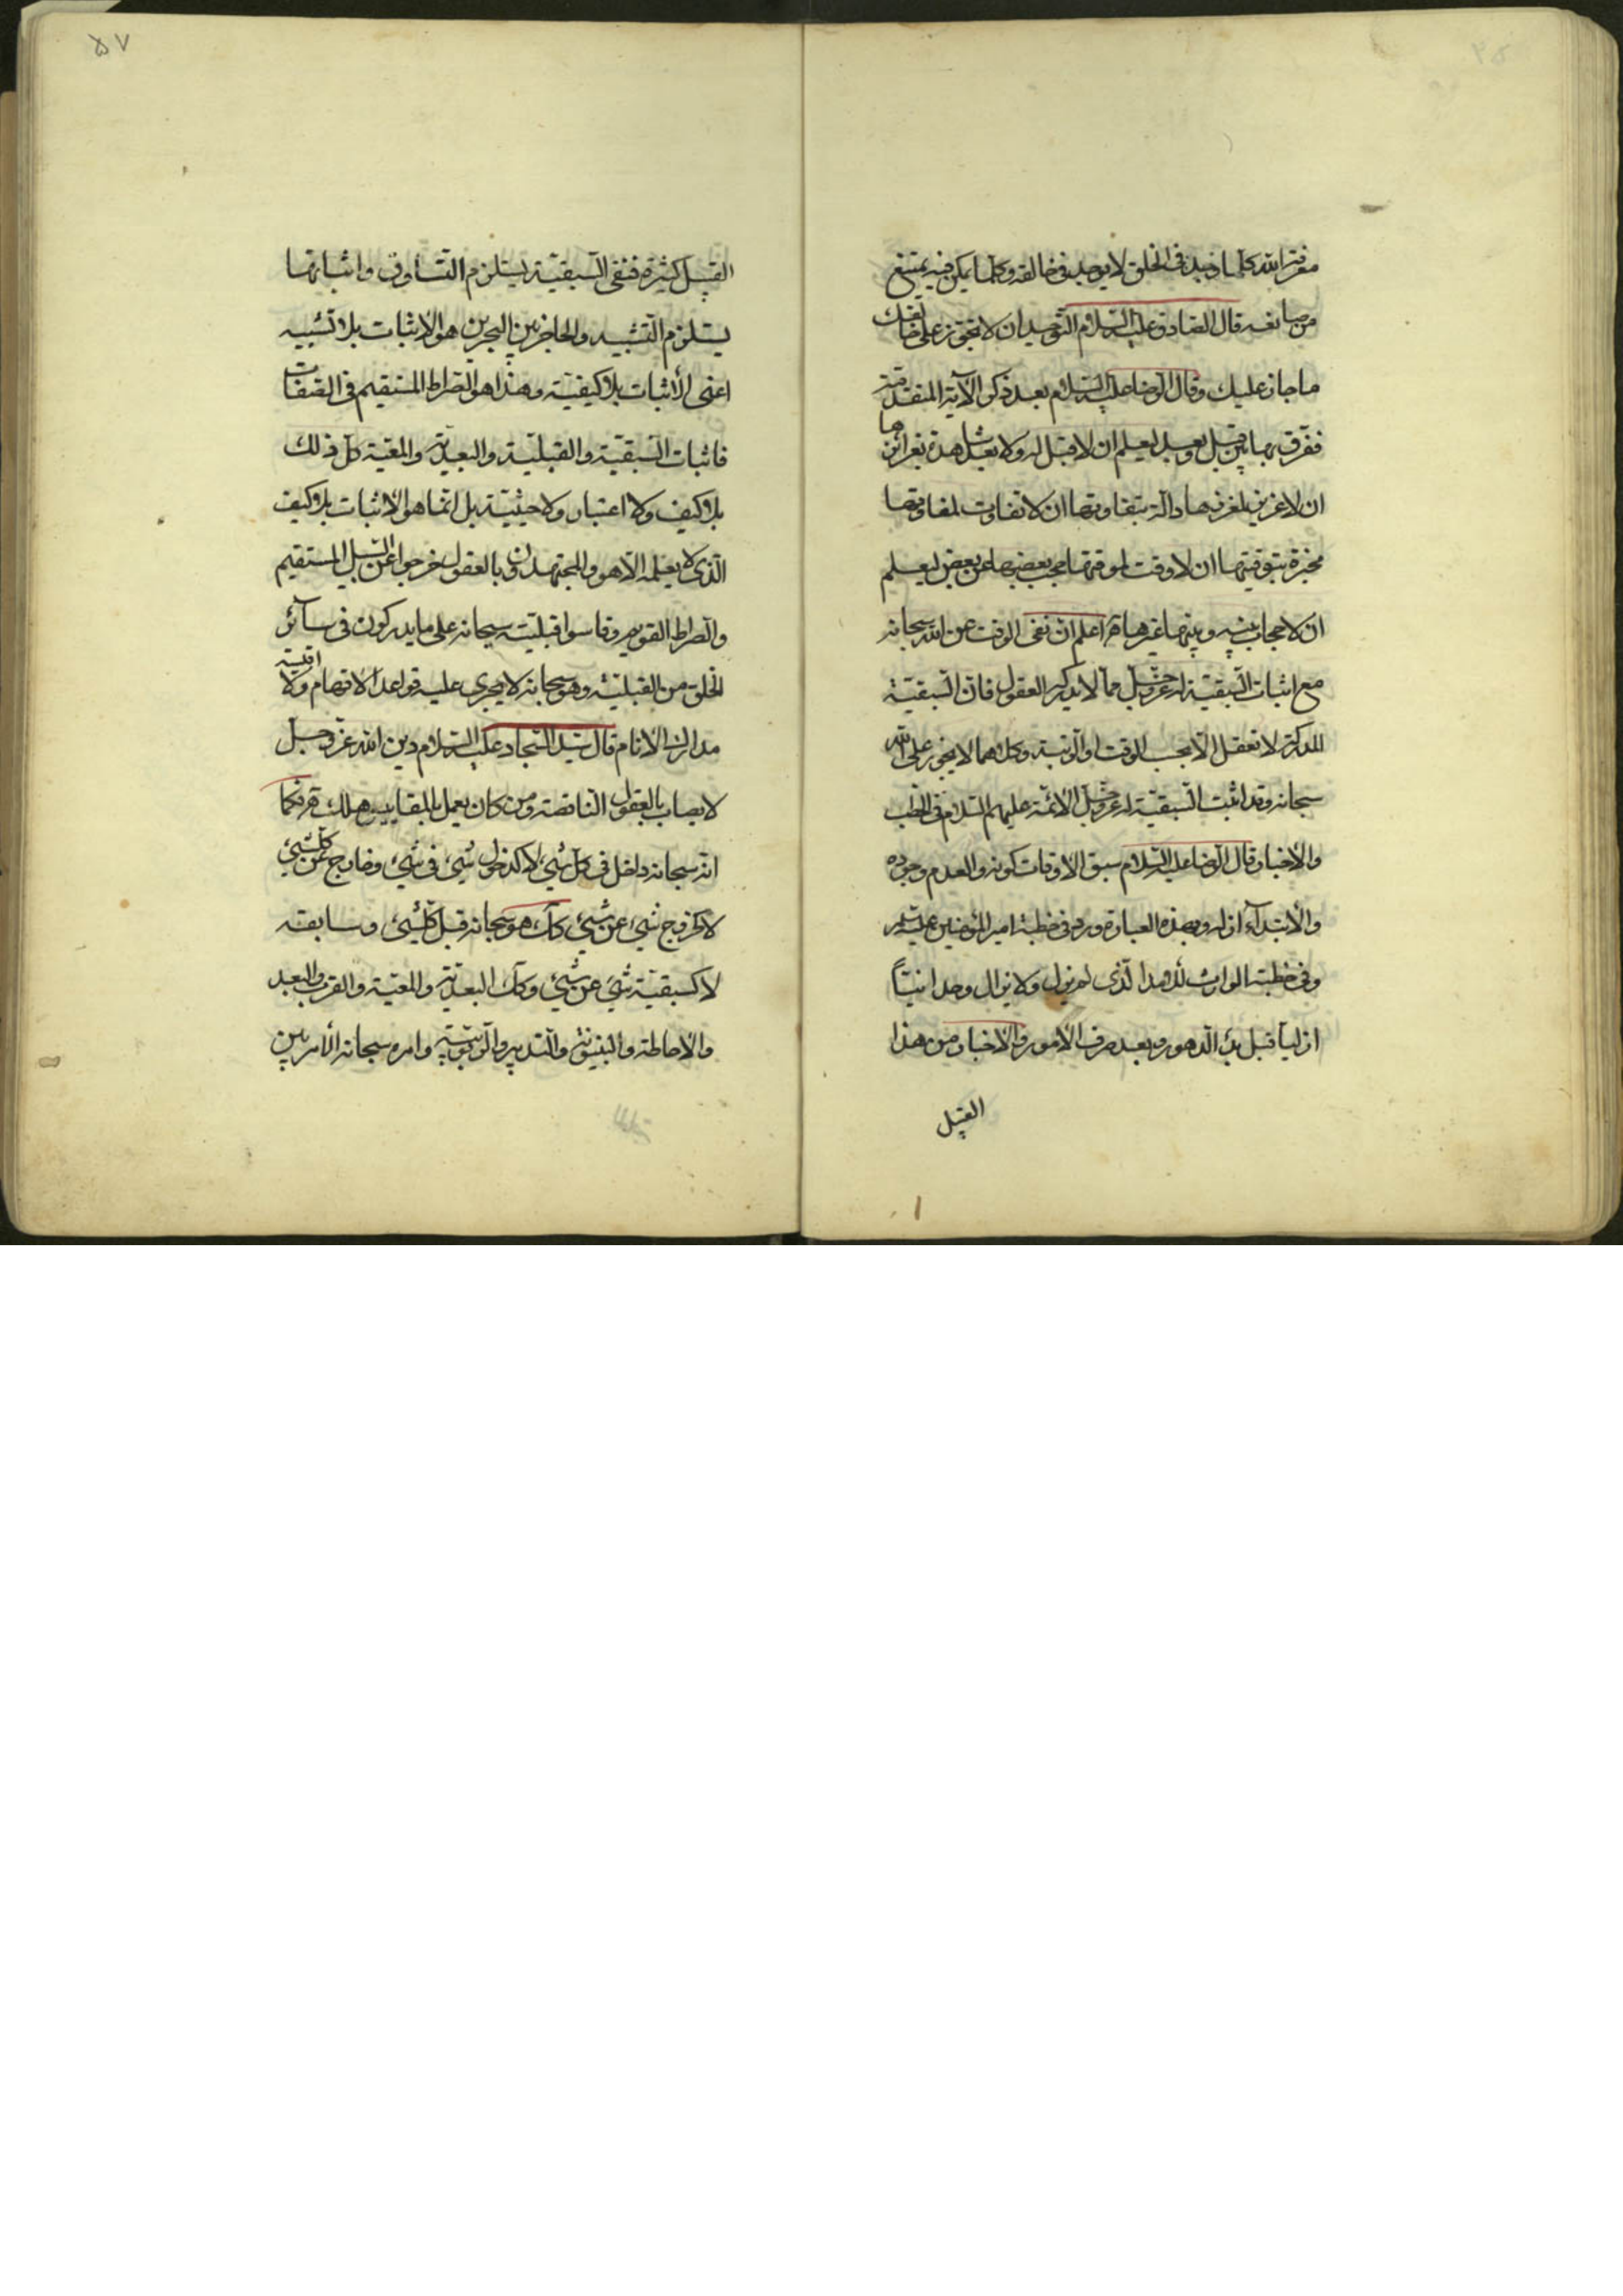 معرفة الله كلما وجد فى الخلق لا يوجد فى خالقه وكلما يمكن فيه يمتنع
من صانعه قال الصادق عليه السلام التوحيد ان لا تجوز على خالقك
ما جاز عليك وقال الرضا عليه السلام بعد ذكر الآية المتقدمة
ففرق بها بين قبل وبعد ليعلم ان لا قبل له ولا بعد شاهدة بغرائزها
ان لا غريزة لمغرزها دالة بتفاوتها ان لا تفاوت لمفاوتها
مخبرة بتوقيتها ان لا وقت لموقتها حجب بعضها عن بعض ليعلم
ان لا حجاب بينه وبينها غيرها ثم اعلم ان نفى الوقت عن الله سبحانه
مع اثبات السبقية له عز وجل مما لا يدركه العقول فان السبقية
المدركة لا تعقل الا بحسب الوقت او الرتبة وكلاهما لا يجوز على الله
سبحانه وقد اثبت السبقية له عز وجل الائمة عليهم السلام فى الخطب
والاخبار قال الرضا عليه السلام سبق الاوقات كونه والعدم وجوده
والابتداء ازله وبهذه العبارة ورد فى خطبة امير المؤمنين عليه السلم
وفى خطبة الذى لم يزل ولا يزال وحدانيا
ازليا قبل بدئ الدهور وبعد صرف الامور والاخبار من هذا
القبيل
٥٧
القبيل كثيرة فنفى السبقية يستلزم التساوق واثباتها
يستلزم التشبيه والحاجز بين البحرين هو الاثبات بلا تشبيه
اعنى الاثبات بلا كيفية وهذا هو الصراط المستقيم فى الصفات
فاثبات السبقية والقبلية والبعدية والمعية كل ذلك
بلا كيف ولا اعتبار ولا حيثية بل انما هو الاثبات بلا كيف
الذى لا يعلمه الا هو والمجتهدون بالعقول خرجوا عن السبيل المستقيم
والصراط القويم وقاسوا قبليته سبحانه على ما يدركون فى سائر
الخلق من القبلية وهو سبحانه لا يجرى عليه قواعد الافهام ولا اقيسة
مدارك الانام قال سيد السجاد عليه السلام دين الله عز وجل
لا يصاب بالعقول الناقصة ومن كان يعمل بالمقاييس هلك ثم كما
انه سبحانه داخل فى كل شىء لا كدخول شىء فى شىء وخارج عن كل شىء
لا كخروج شىء عن شىء كك هو سبحانه قبل كل شىء وسابقه
لا كسبقية شىء عن شىء وكك البعدية والمعية والقرب والبعد
والاحاطة والبينونة والتدبير والربوبية وامره سبحانه الامر بين